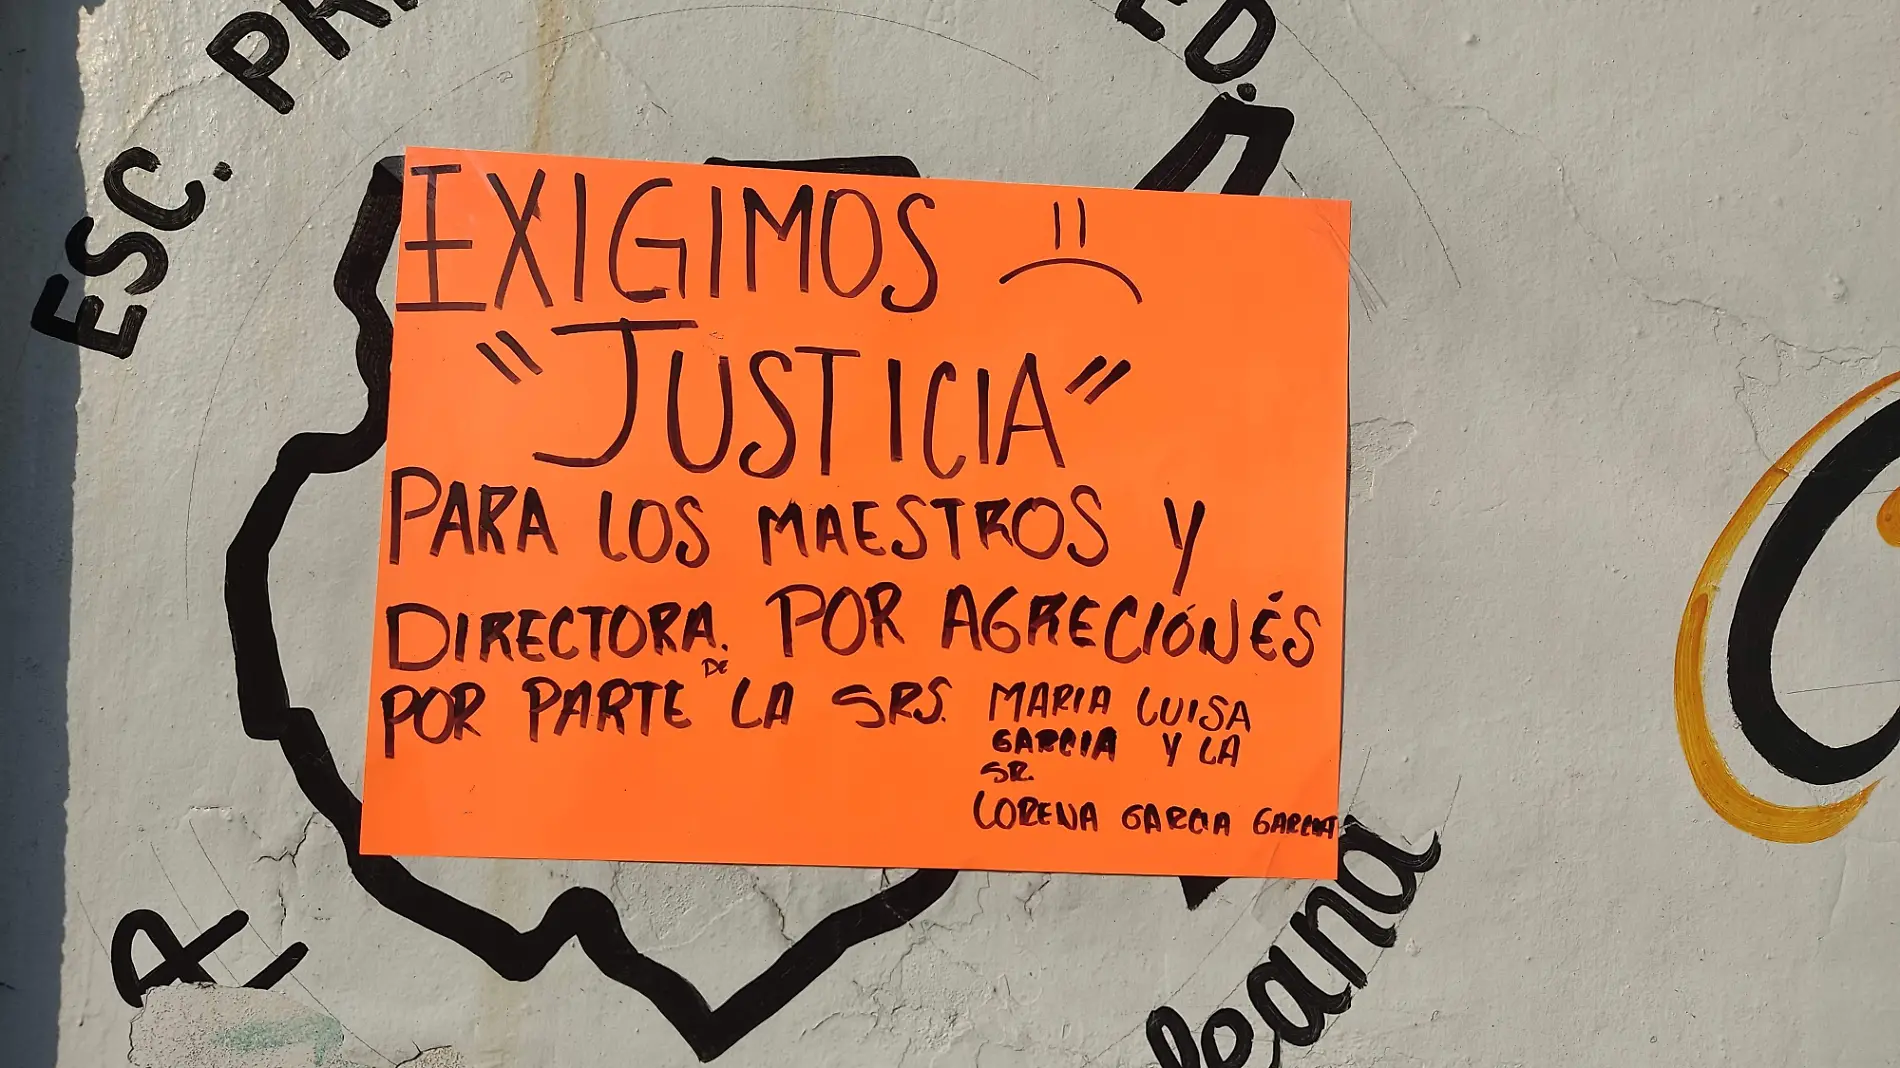 ESC. PR
ED.
EXIGIMOS
"JUSTICIA"
PARA LOS MAESTROS Y
DIRECTORA. POR AGRECIÓNÉS
POR PARTE DE LA SRS. MARIA LUISA
GARCIA Y LA
SR.
LORENA GARCIA GARCIA
leana